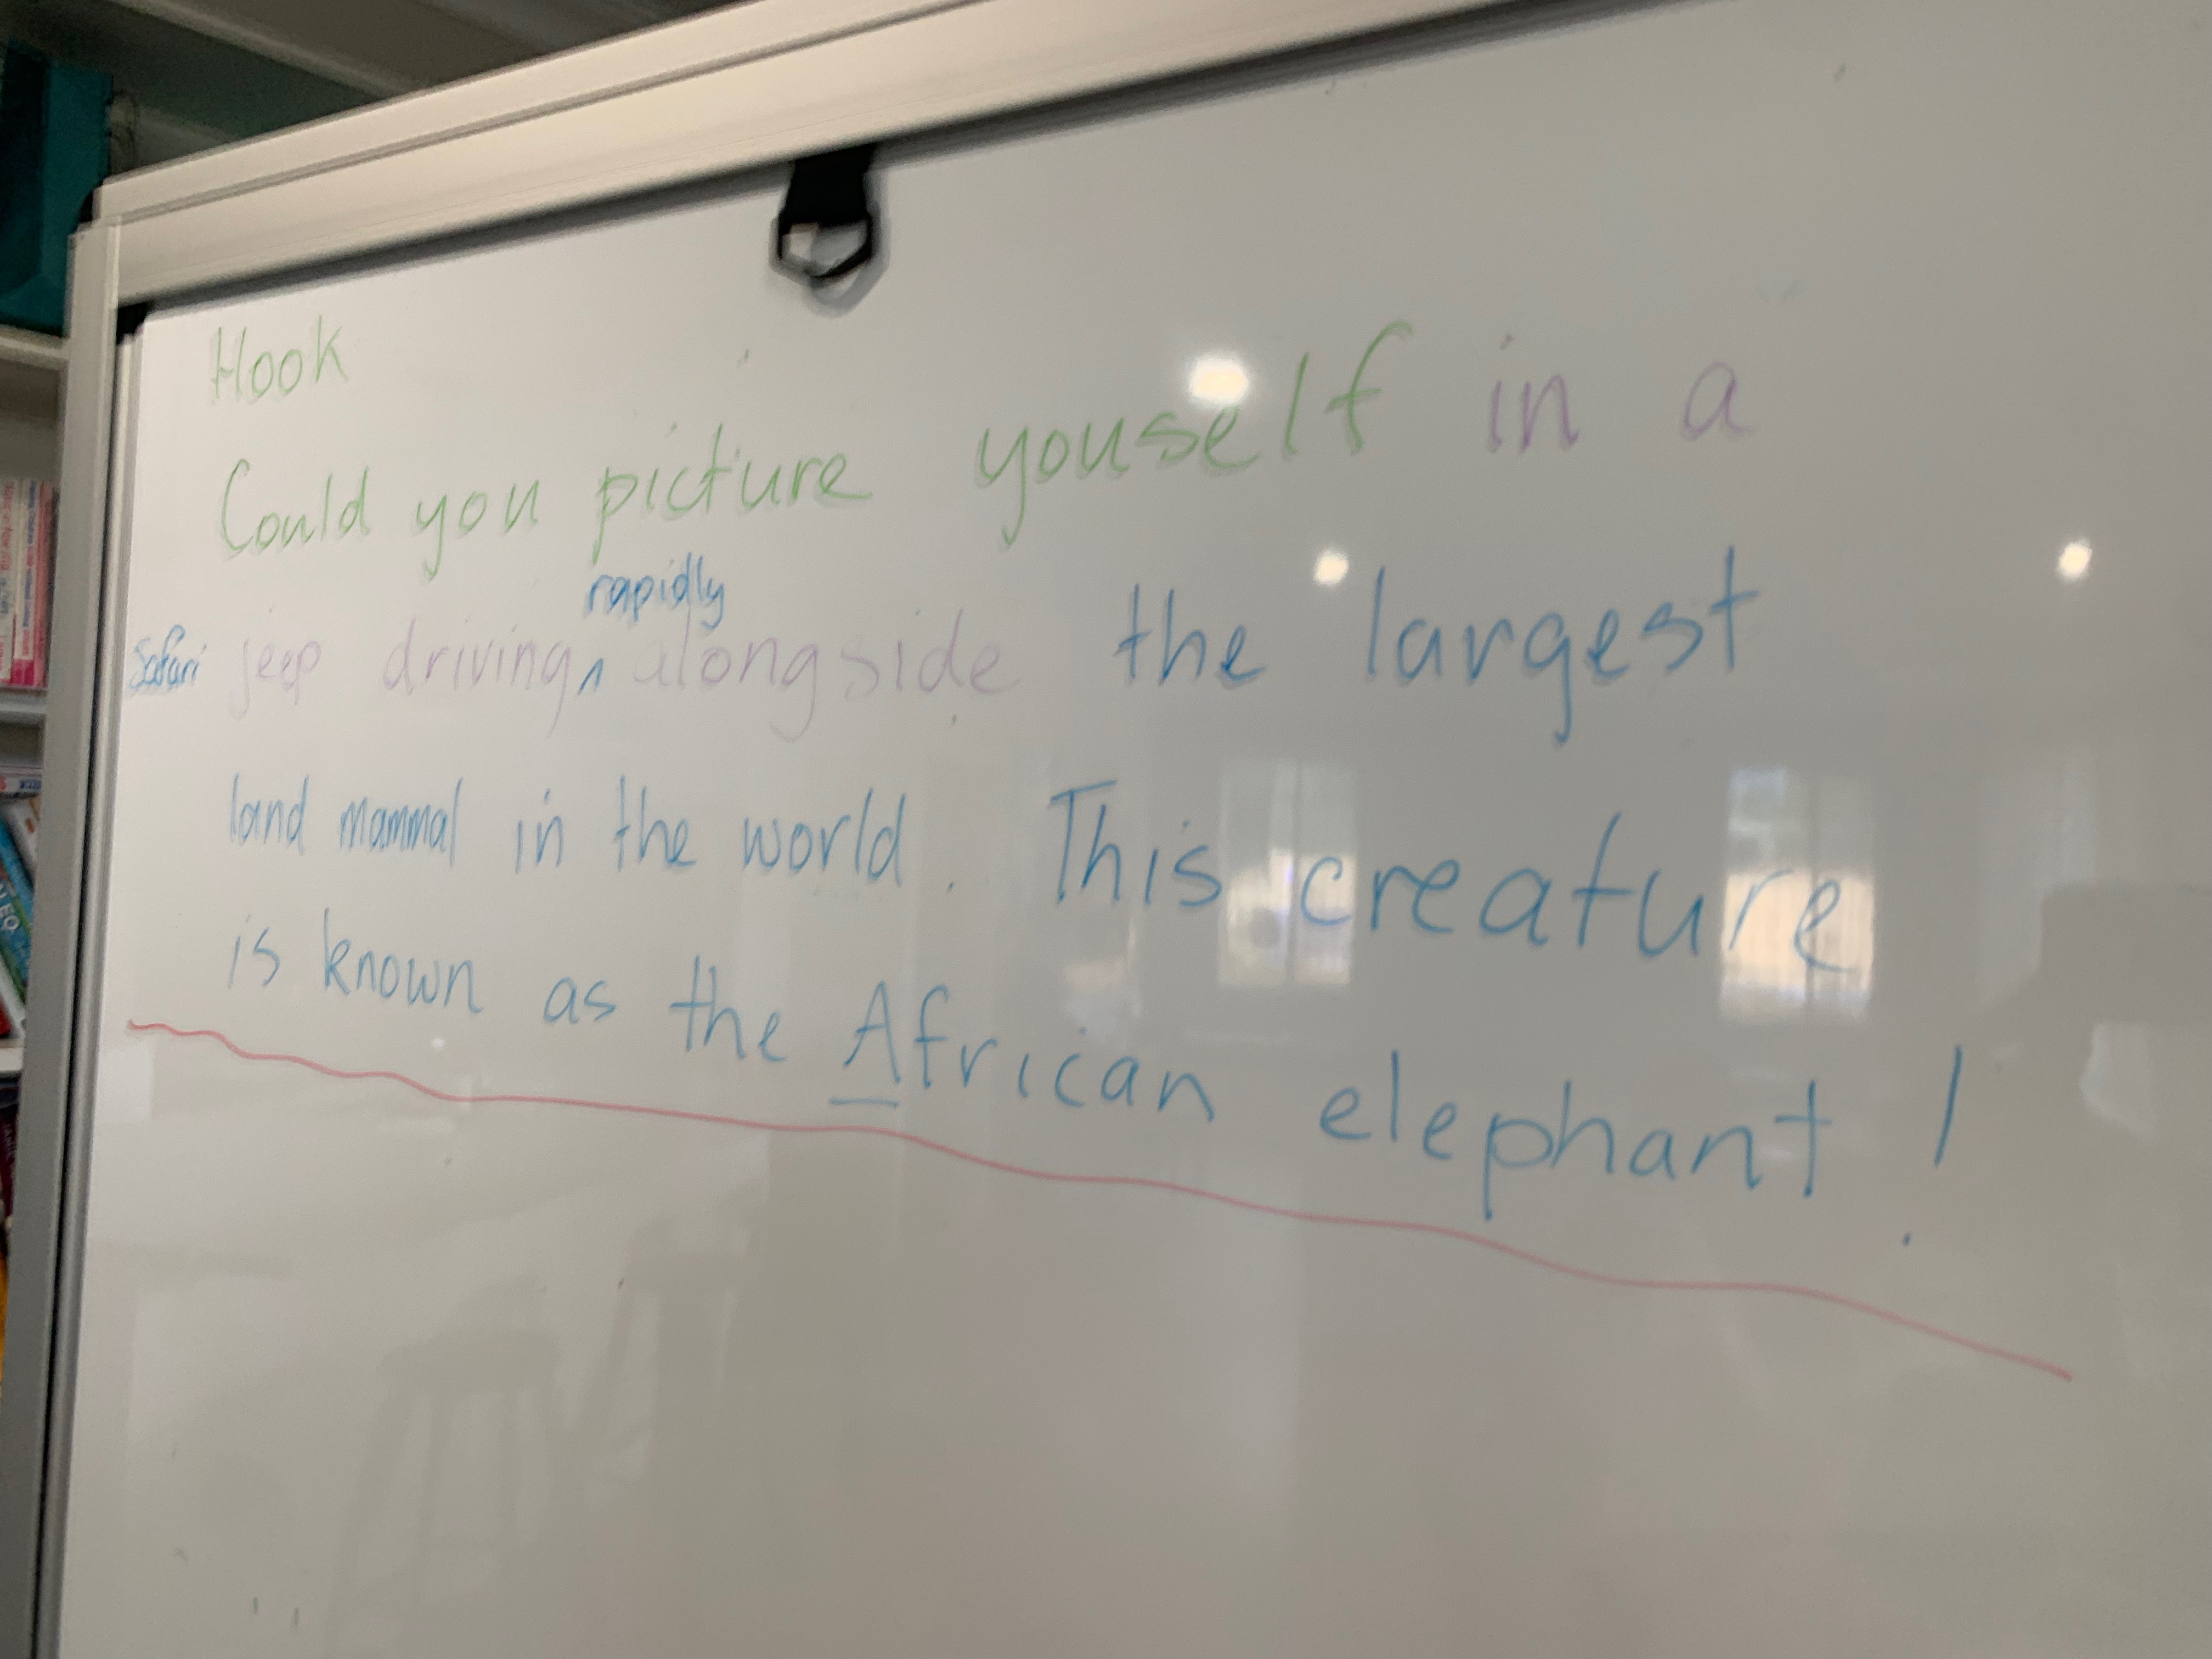 Hook
Could you picture youself in a
rapidly
Safari jeep driving ^ alongside the largest
land mammal in the world. This creature
is known as the African elephant!